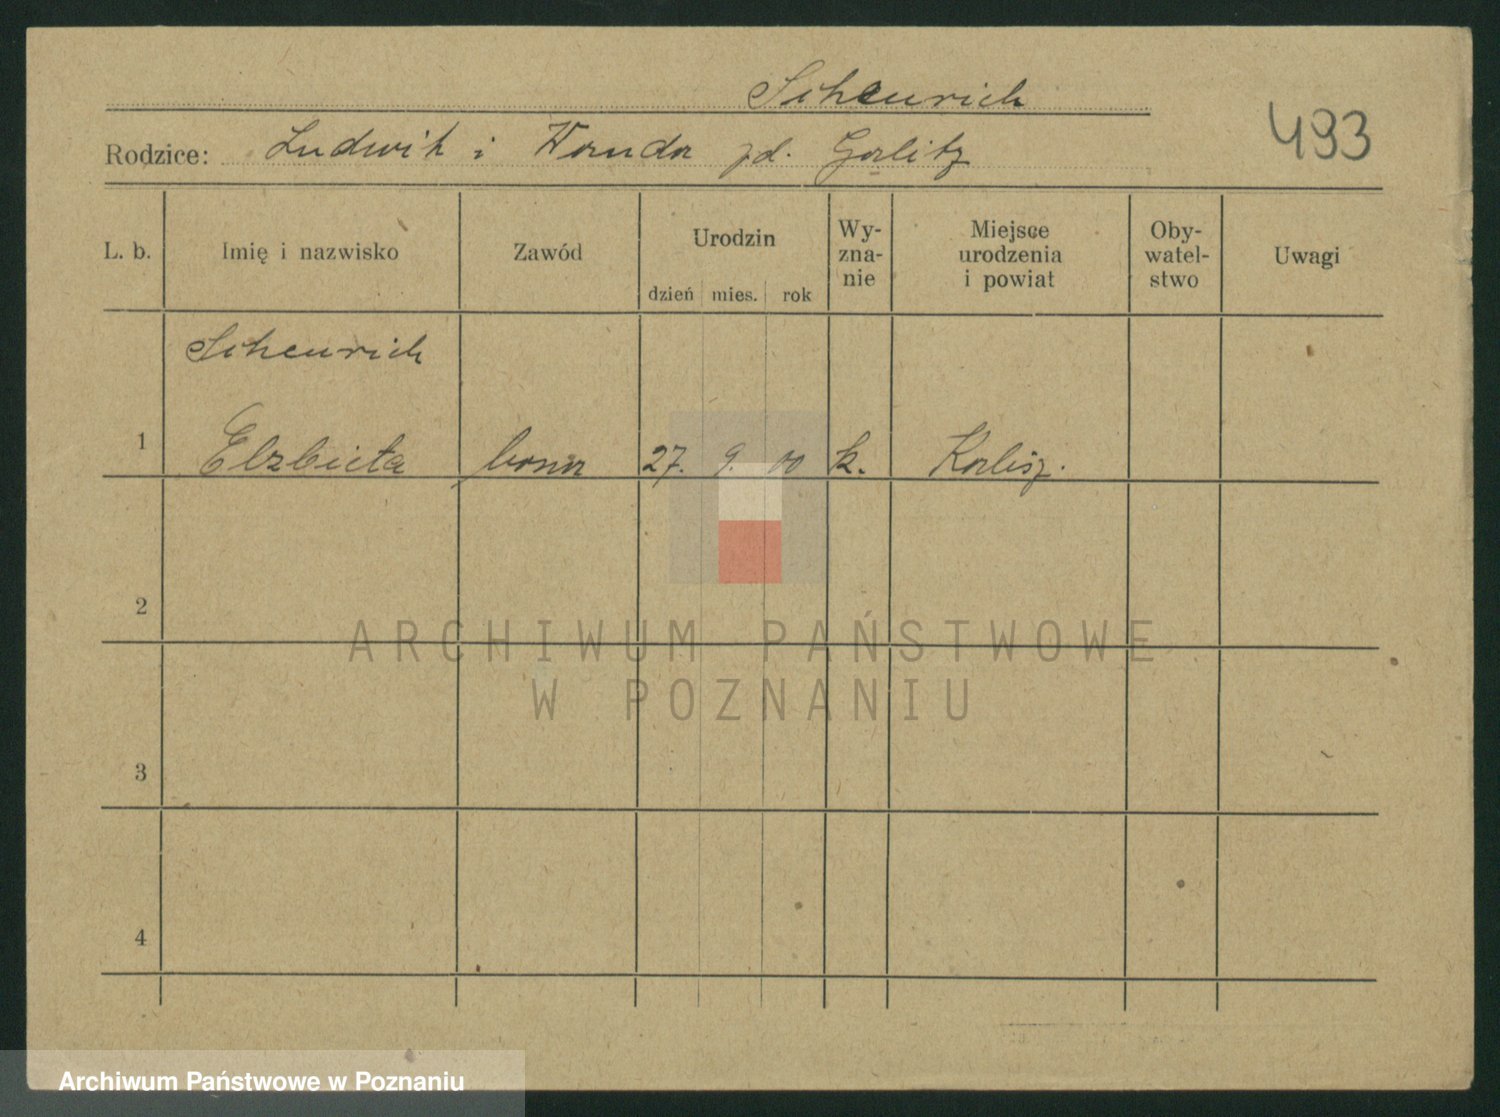 Scheurich
493
Rodzice: Ludwik i Wanda zd. Gorlitz
L. b.
Imię i nazwisko
Zawód
Urodzin
dzień mies. rok
Wy-
zna-
nie
Miejsce
urodzenia
i powiat
Oby-
watel-
stwo
Uwagi
Scheurich
1 Elzbieta bona 27. 9. 00 k. Kalisz.
2
3
4
ARCHIWUM PAŃSTWOWE
W POZNANIU
Archiwum Państwowe w Poznaniu